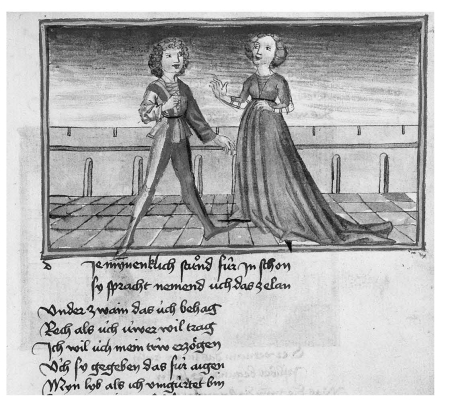 Je mynenklich stuond für In schon
sy spracht nemend uch das ze lan
Vnder zwain das üch behag
Rech als üch üwer wil trag
Ich wil üch mein trüw erzögen
Vch sy gegeben das für augen
Myn lyb als ich vmgürtet bin